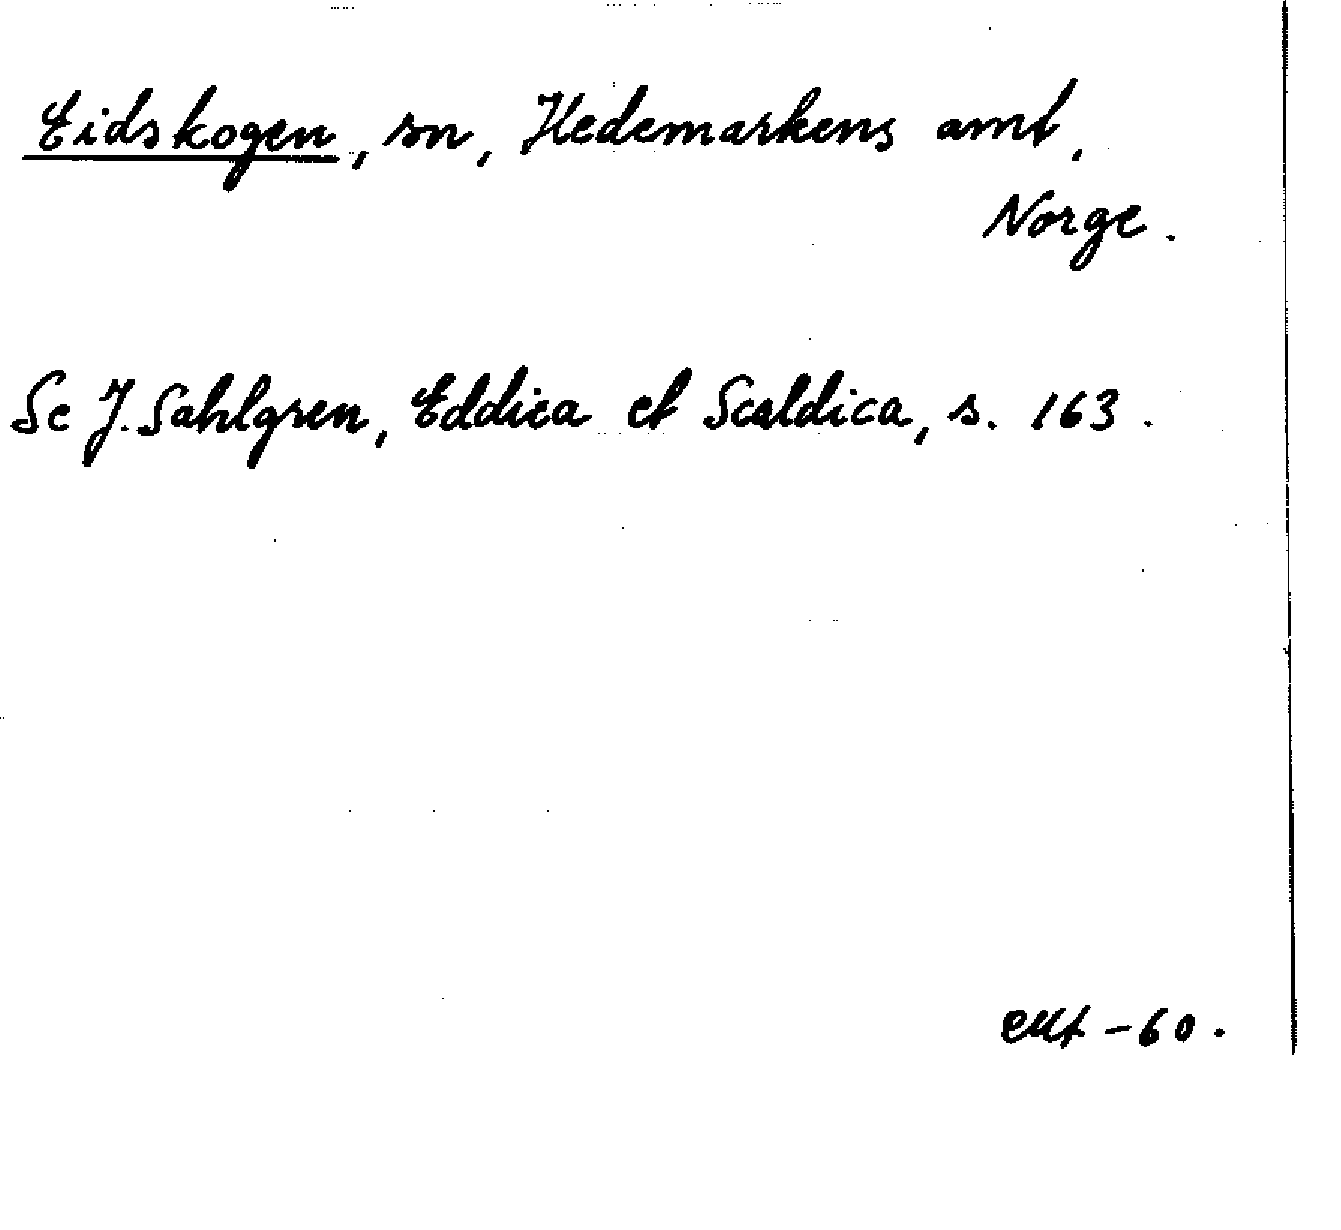 Eidskogen, sn, Hedemarkens amt,
Norge.
Se J. Sahlgren, Eddica et Scaldica, s. 163.
-60.